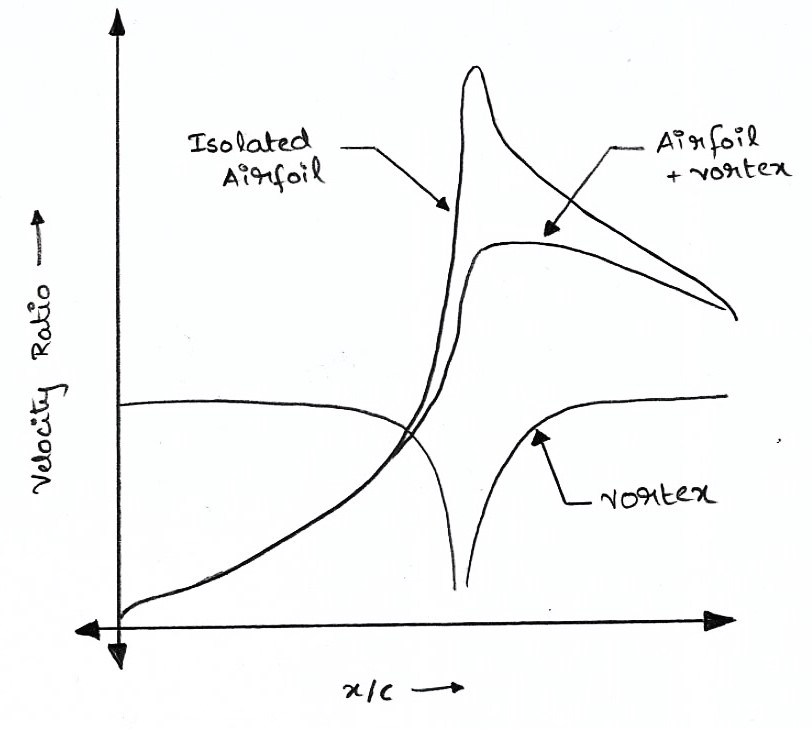 Isolated
Airfoil
Airfoil
+ vortex
Velocity Ratio
vortex
x/c